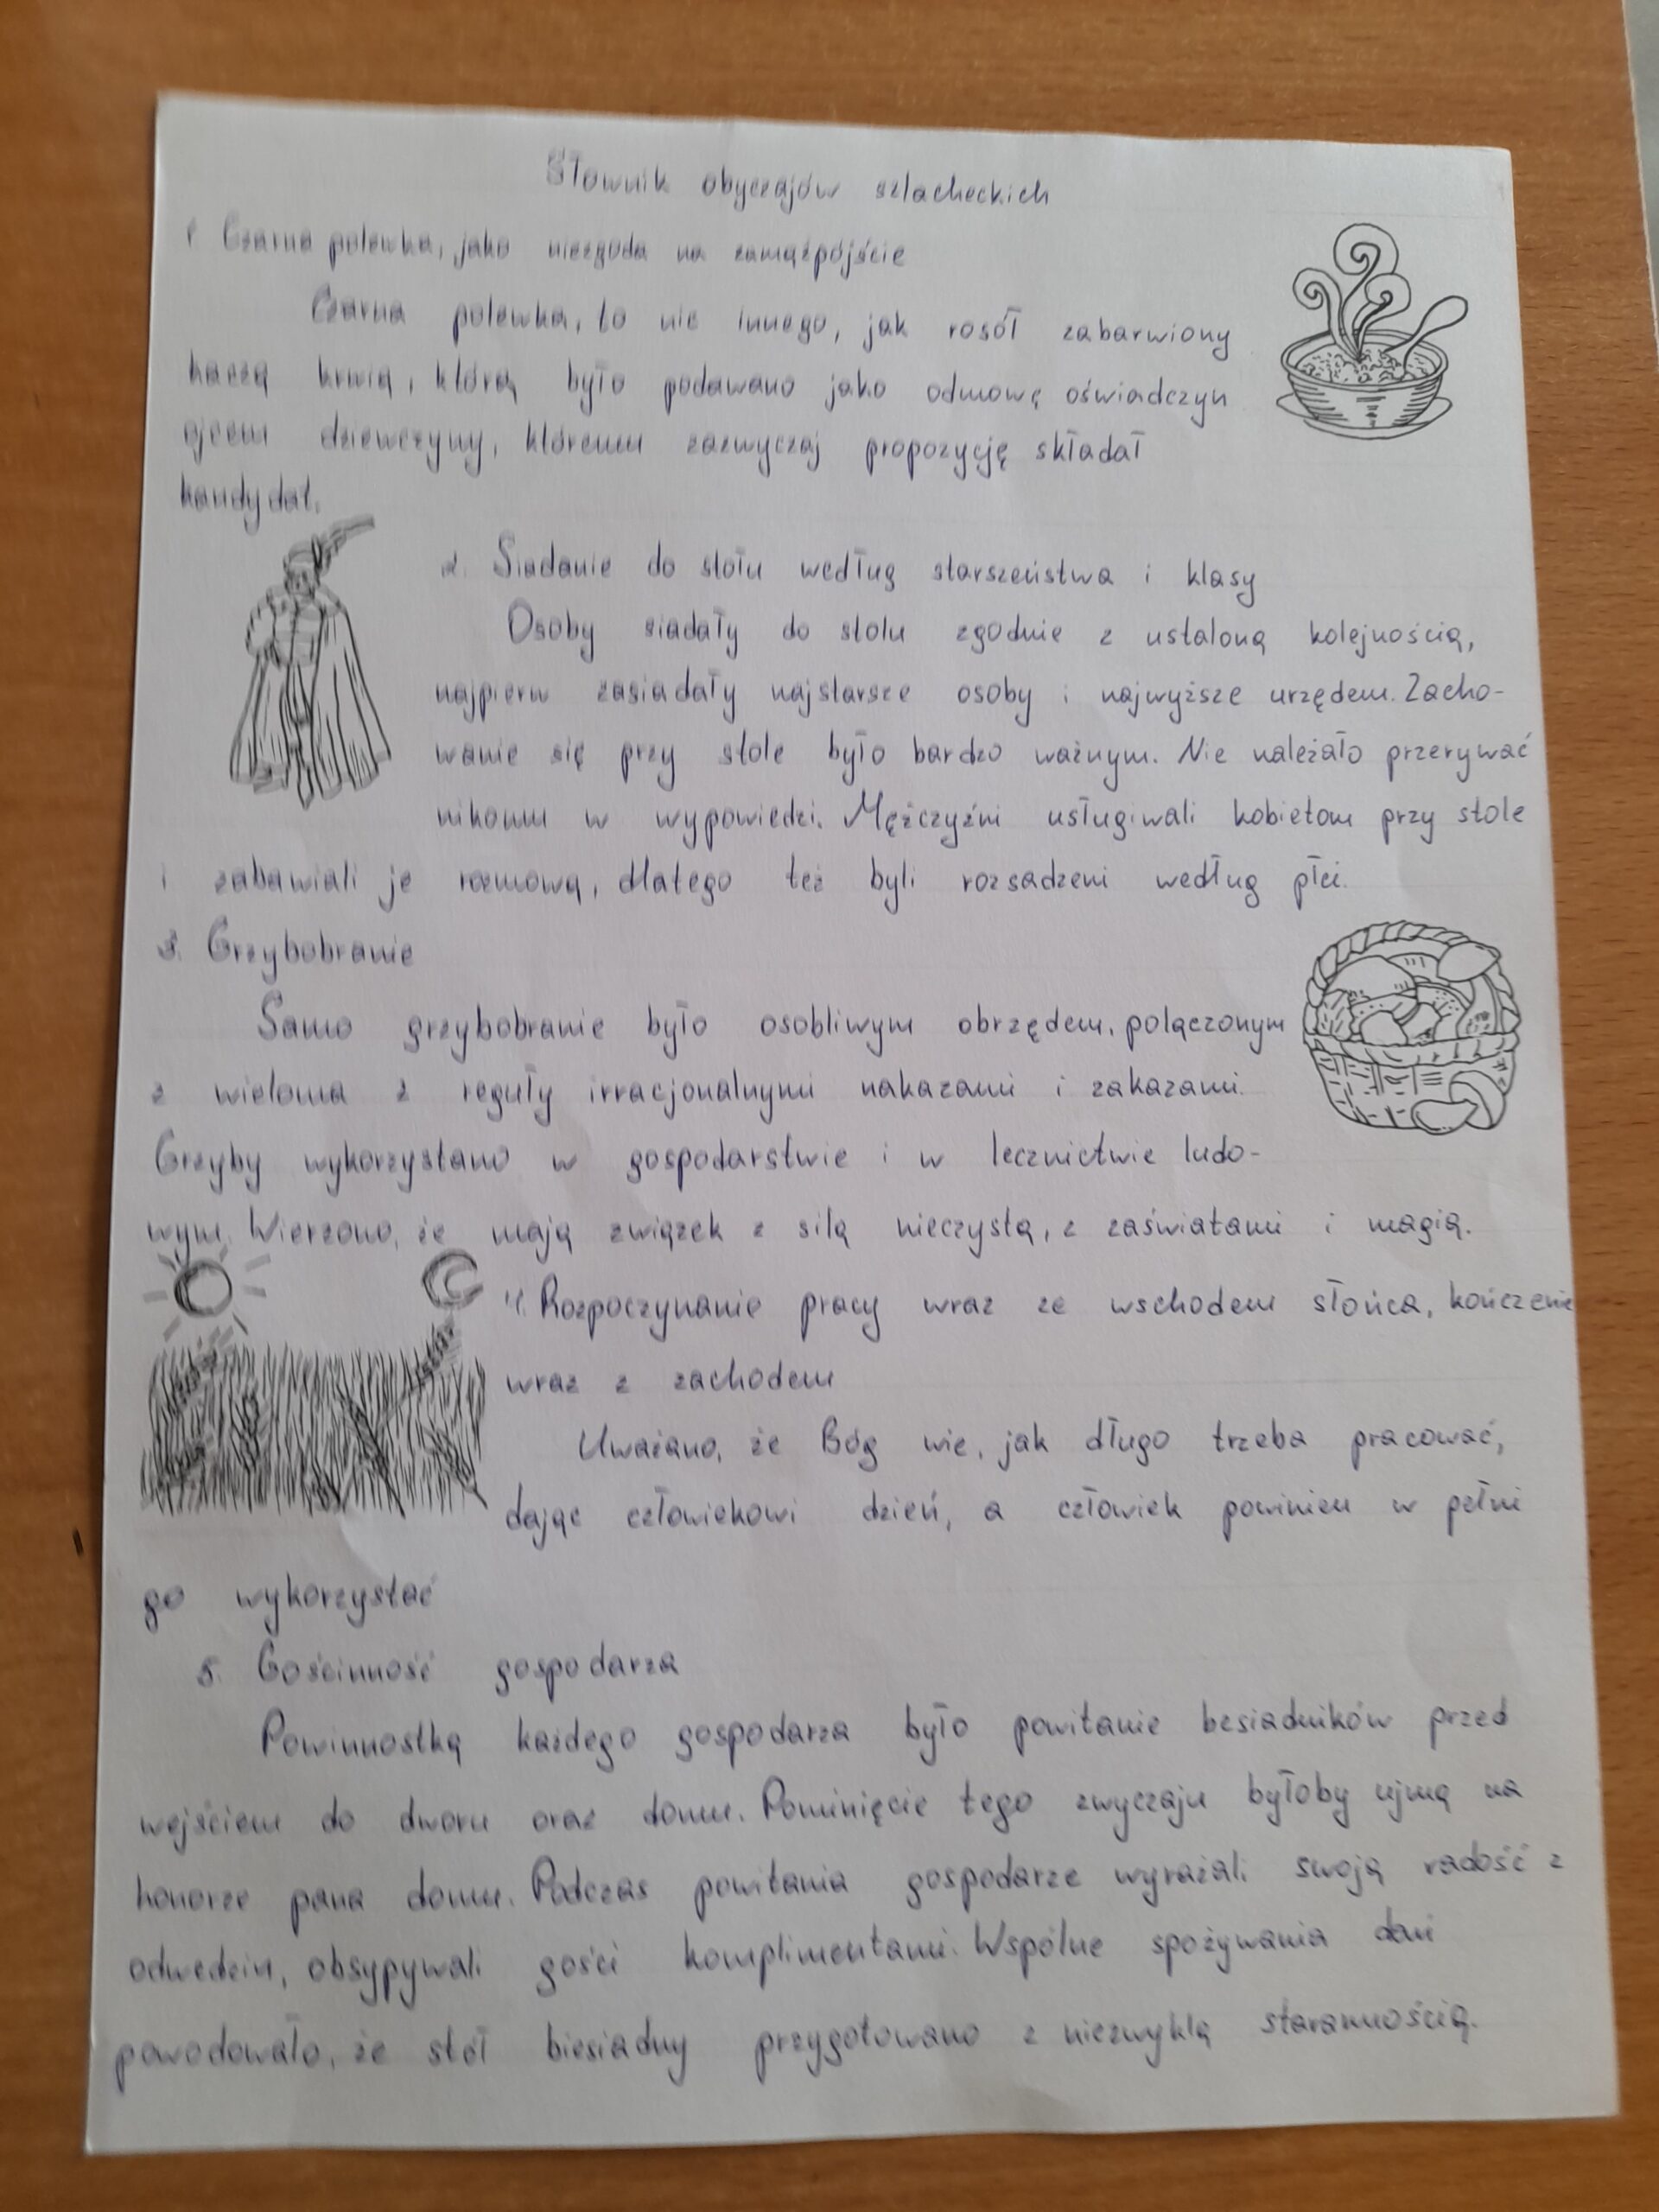 Słownik obyczajów szlacheckich
1. Czarna polewka, jako niezgoda na zamążpójście
Czarna polewka, to nic innego, jak rosół zabarwiony
kaczą krwią, którą było podawano jako odmowę oświadczyn
ojcem dziewczyny, któremu zazwyczaj propozycję składał
kandydat.
2. Siadanie do stołu według starszeństwa i klasy
Osoby siadały do stołu zgodnie z ustaloną kolejnością,
najpierw zasiadały najstarsze osoby i najwyższe urzędem. Zacho-
wanie się przy stole było bardzo ważnym. Nie należało przerywać
nikomu w wypowiedzi. Mężczyźni usługiwali kobietom przy stole
i zabawiali je rozmową, dlatego też byli rozsadzeni według płci.
3. Grzybobranie
Samo grzybobranie było osobliwym obrzędem, połączonym
z wieloma z reguły irracjonalnymi nakazami i zakazami.
Grzyby wykorzystano w gospodarstwie i w lecznictwie ludo-
wym. Wierzono, że mają związek z siłą nieczystą, z zaświatami i magią.
4. Rozpoczynanie pracy wraz ze wschodem słońca, kończenie
wraz z zachodem
Uważano, że Bóg wie, jak długo trzeba pracować,
dając człowiekowi dzień, a człowiek powinien w pełni
go wykorzystać
5. Gościnność gospodarza
Powinnostką każdego gospodarza było powitanie besiadników przed
wejściem do dworu oraz domu. Pominięcie tego zwyczaju byłoby ujmą na
honorze pana domu. Podczas powitania gospodarze wyrażali swoją radość z
odwedzin, obsypywali gości komplimentami. Wspólne spożywania dań
powodowało, że stół biesiadny przygotowano z niezwykłą starannością.